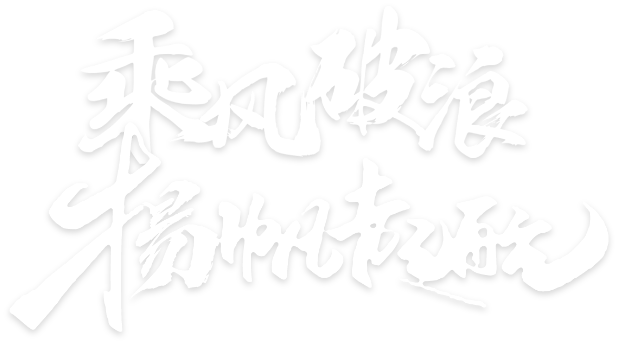 乘风破浪
扬帆起航